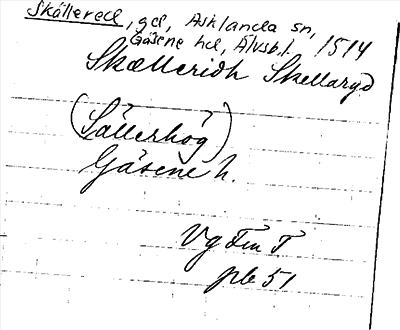 Skällered, gd, Asklanda sn,
Gäsene hd, Älvsb.l. 1514
Skælleridh Skellaryd
(Sällerhög)
Gäsene h.
Vg Fm T
pb 51